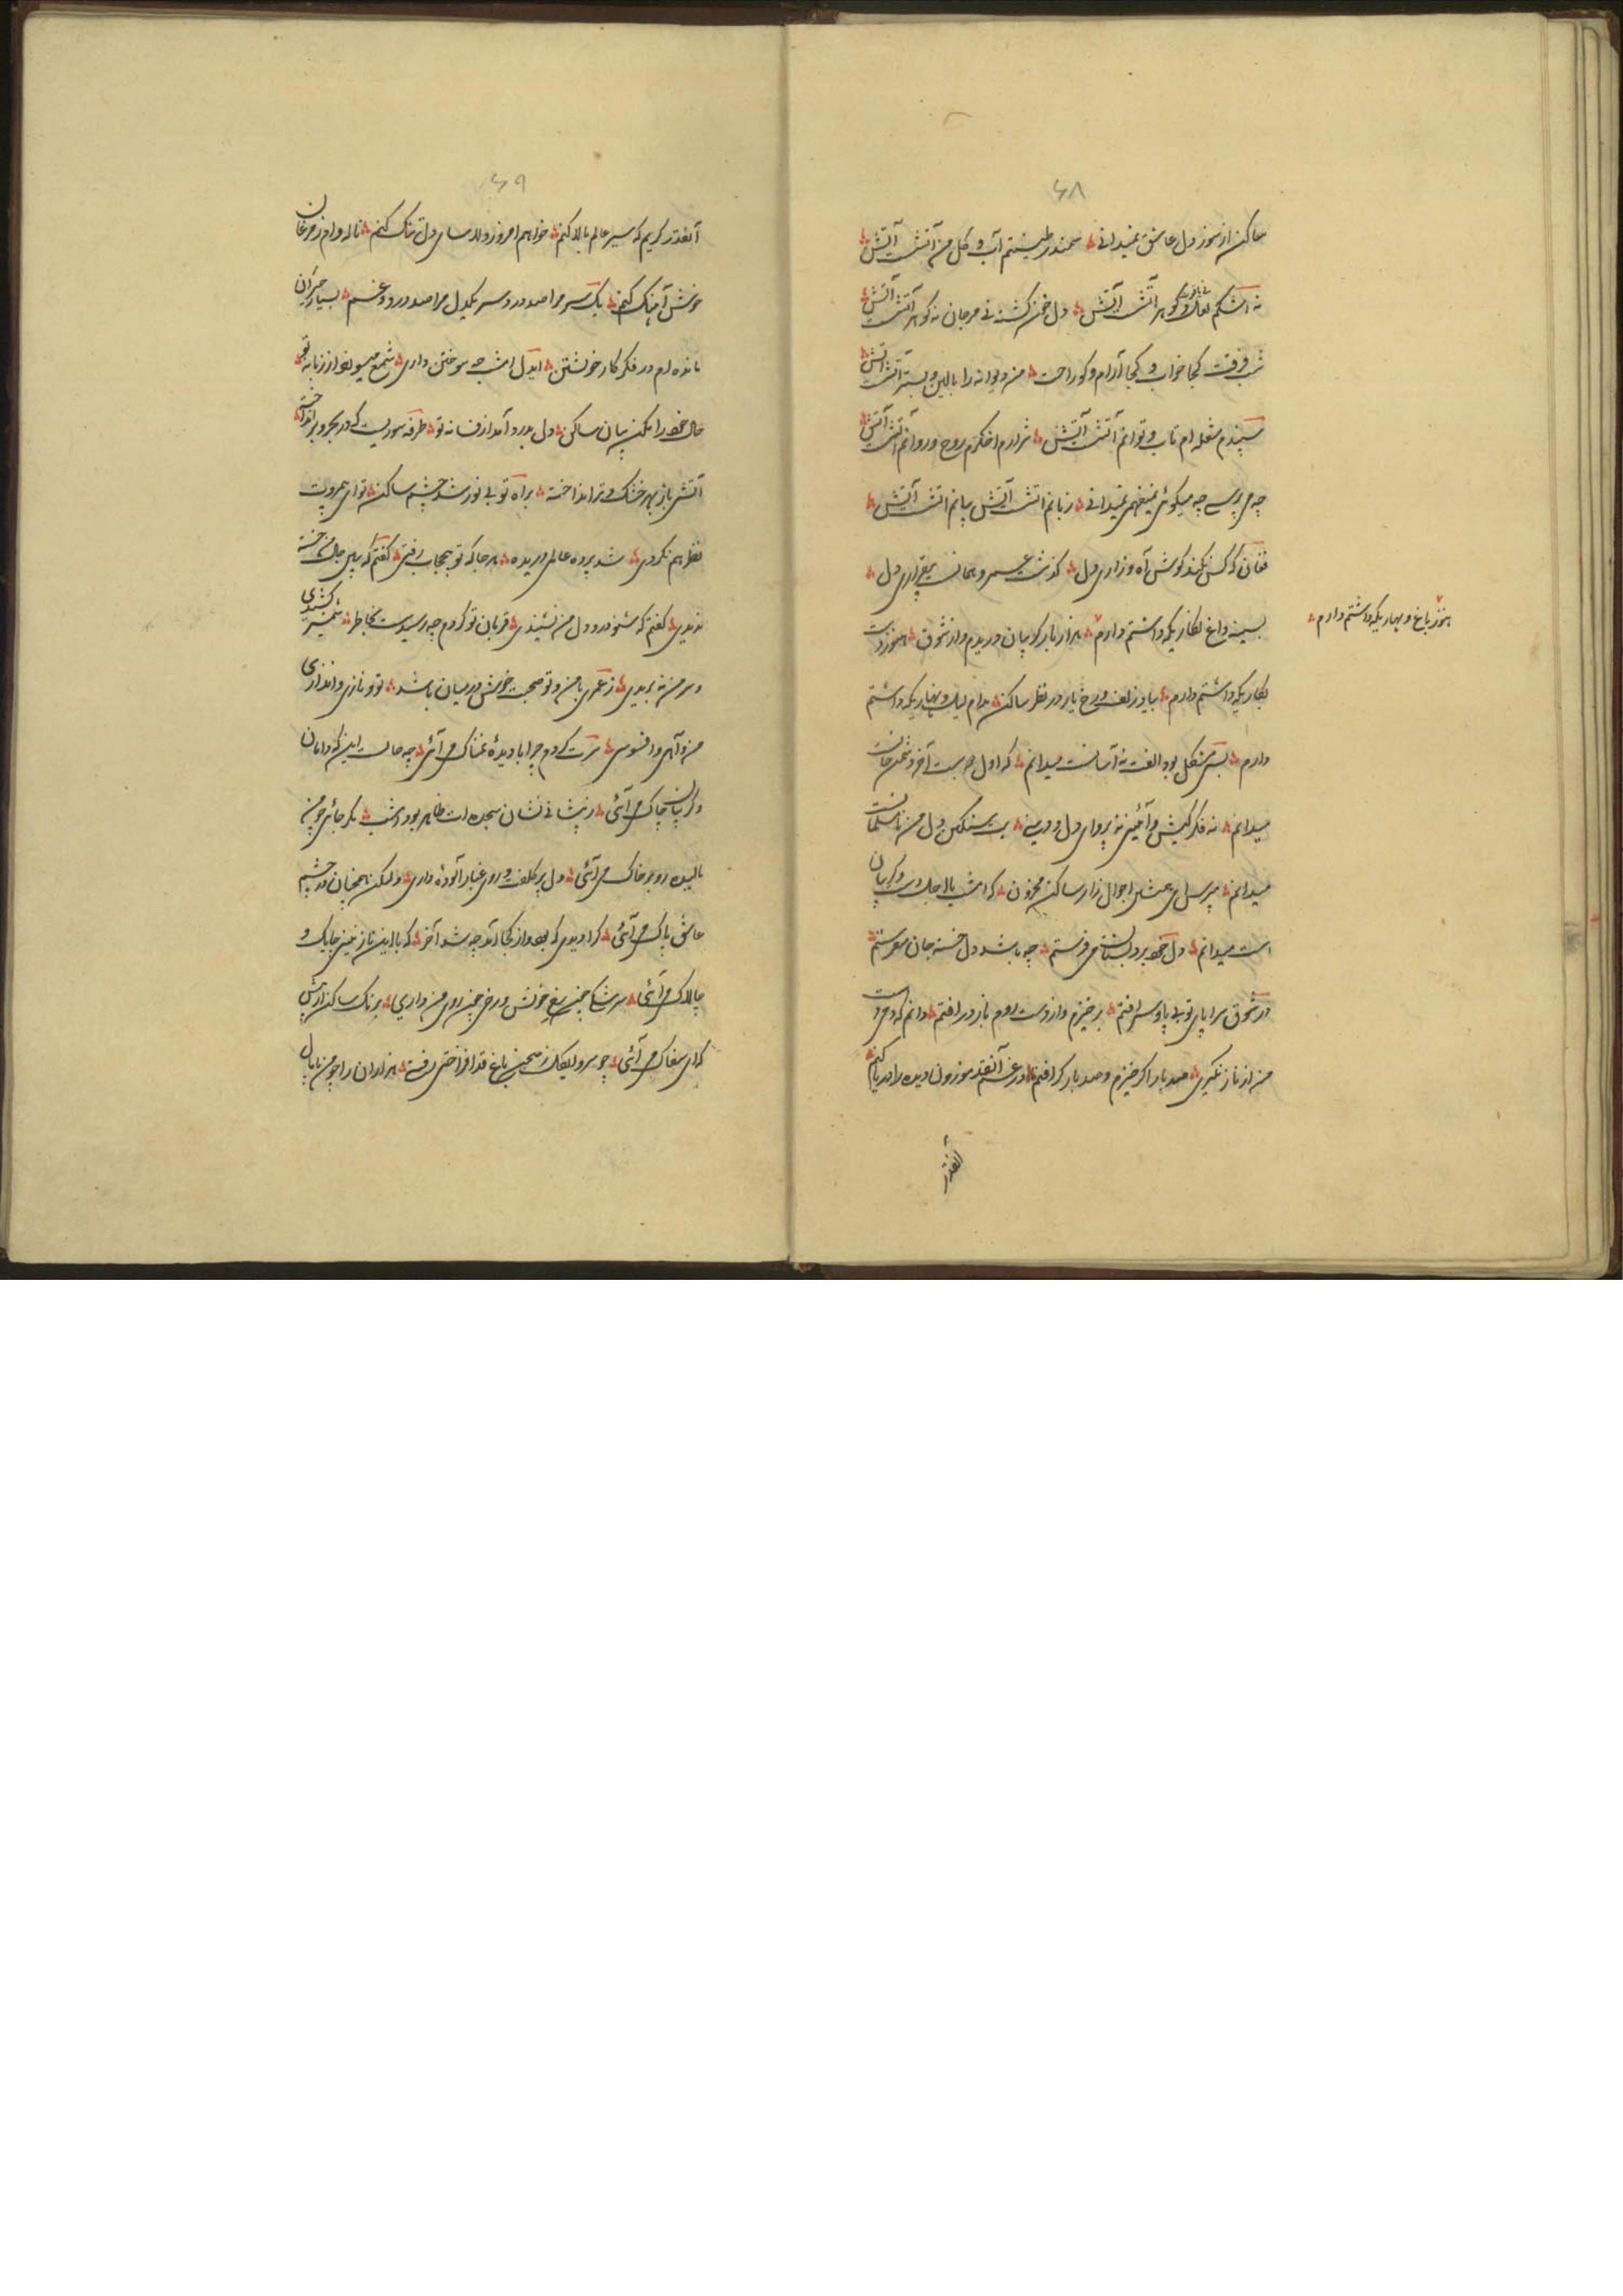 ۶۸
ساکن از سوز دل عاشق نمیدانی سمندر طینتم آب و گل من آتشست آتش
نه اشکم لعل و گوهر آتشست آتش دل خون گشته نی مرجان نه گوهر آتشست آتش
شب فرقت کجا خواب و کجا آرام و کو راحت من دیوانه را بالین و بستر آتشست آتش
سپندم شعله ام تاب و توانم آتشست آتش شرارم اخگرم روح و روانم آتشست آتش
چه می پرسی چه میگوئی نمیفهمی نمیدانی زبانم آتشست آتش بیانم آتشست آتش
فغان که کس نکند گوش آه و زاری دل گذشت عمر و همانست بیقراری دل
بسینه داغ نگاریکه داشتم دارم هزار بار گریبان دریدم و از شوق هنوز دست
هنوز باغ و بهاریکه داشتم دارم
بکاریکه داشتم دارم بیاد زلف و رخ یار در نظر ساکن مدام لیل و نهاریکه داشتم
دارم بسی مشکل بود الفت نه آسانست میدانم که اول آخر دشمن جانست
میدانم نه فکر کیش و آئینی نه پروای دل و دینی بت سنگین دل من نامسلمانست
میدانم مپرس ای احوال زار ساکن محزون که امشب بالا و گریبان
است میدانم دل خود بر دلستان می فرستم چه باشد دل خسته جان میفرستم
در شوق سراپای تو بی پا و سر افتم برخیزم و از دست روم باز در افتم دانم که
من از ناز نگیری صد بار اگر خیزم و صد بار گر افتم در غم آنقدر موزون دیده را دریا کنم
آنقدر
۶۹
آنقدر گریم که سیر عالم بالا کنم خواهم امروز دوای دل تنگ کنم ناله وام از مرغان
خوش آهنگ کنم یک سر مرا صد درد سر یکدل مرا صد درد و غم بسیار حیران
مانده ام در فکر کار خویشتن ایدل امشب چه سوختن داری شمع میسوزد از زبانه تو
حال خود را مکن بیان ساکن دل بدرد آمد از فسانه تو طرفه شوریست که در بحر و بر انداخته
آتش باز بهر خشک و تر انداخته براه تو بی نور شد چشم ساکن تو ای بیمروت
نظر هم نکردی شد پرده عالمی دریده هر جا که تو بیحجاب رفتی گفتم که ببین حال من خسته
ندیدی گفتم که شنو درد دل من نشنیدی قربان تو گردم چه رسیدست بخاطر شمشیر کشیدی
و سر من نه بریدی ز عمری با من و تو صحبت خوش در میان باشد تو و نازی و اندازی
من و آهی و افسوسی سرت گردم چرا با دیدهٔ نمناک می آئی چه حالست این که دامان
و گریبان چاک می آئی ز پیشانی نشان سجده ات ظاهر بود امشب مگر جائی چو من
مالیده رو بر خاک می آئی دل پر کلفت و روی غبار آلودهٔ داری ولیکن همچنان در چشم
عاشق پاک می آئی کرا دیدی کجا بودی از کجا آمد چه شد آخر که با این نازنین چابک و
چالاک می آئی
که ای سفاک می آئی چو سرو لیک در صحن باغ قد افراختی رفتی هزاران را چو من پامال